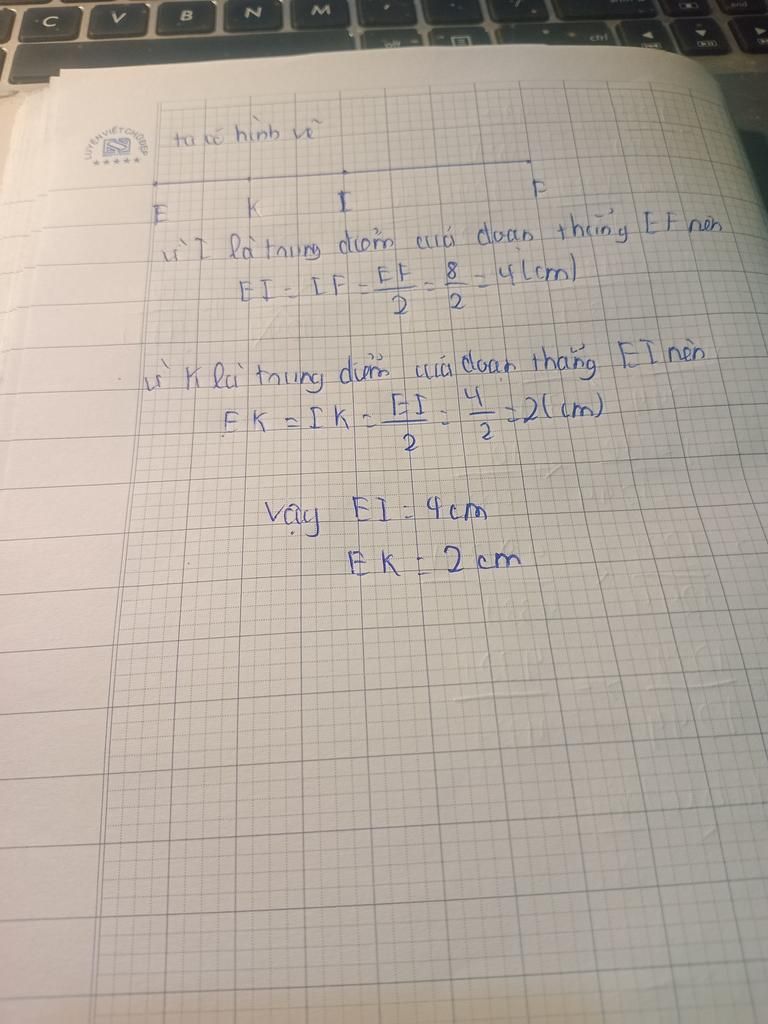 C V B N M
end
alt
ctrl
LUYỆN VIẾT CHỮ ĐẸP
ta có hình vẽ
E K I F
vì I là trung điểm của đoạn thẳng EF nên
EI = IF = EF/2 = 8/2 = 4(cm)
vì K là trung điểm của đoạn thẳng EI nên
EK = IK = EI/2 = 4/2 = 2(cm)
Vậy EI = 4cm
EK = 2cm